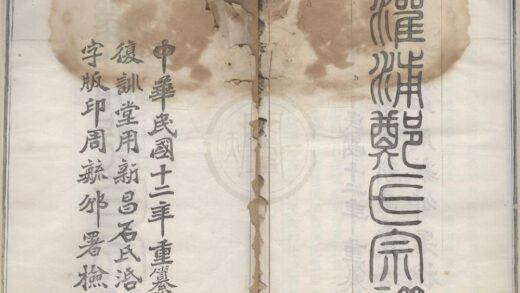 灌浦鄭氏宗
中華民國十二年重纂
復訓堂用新昌石氏活
字版印周毓邠署檢